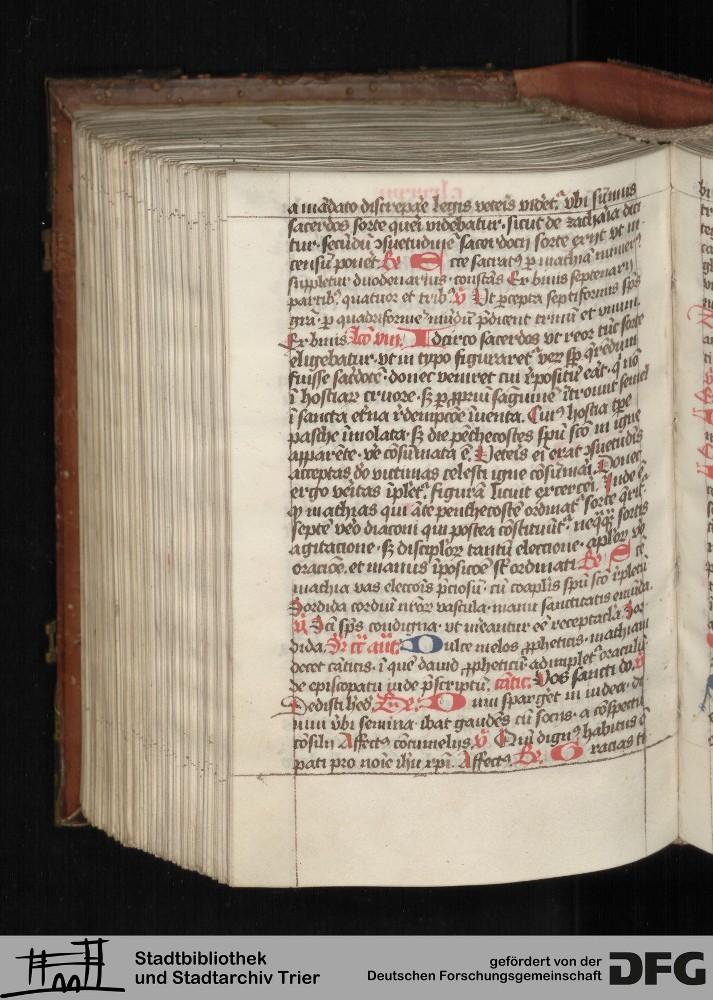 a mādato discrepare legis veteris videtᷣ vbi sūmus
sacerdos sorte queri videbatur · sicut de zacharia dici
tur · secūdū ꝯsuetudinē sacerdocij sorte exijt vt in
censū poneret Re Sorte sacratꝰ ꝑ mathiā numerꝰ
suppletur duodenarius · constās Ex binis septenarij
partibꝰ quatuor et tribꝰ v̄ Vt percepta septiformis sps̄
grā · ꝑ quadriforme mūdū p̄dicent trinū et vnum
Ex binis lc̄o viij Idcirco sacerdos vt reor tūc sorte
eligebatur · vt in typo figuraretᷣ
fuisse sacdotē · donec veniret cui repositū erat · q nō
ī hostiarꝝ cruore · sꝫ ꝑ ꝓpriū saguinē ītrouit semel
ī sancta eterna redempcōe īuenta. Cuiꝰ hostia tpe
pasche īmolata · sꝫ die pēthecostes spū scō in igne
apparēte · ve cōsūmata ē. Veteris eī erat ꝯsuetudīs
acceptas do victimas celesti igne cōsūmai. Donec
ergo veritas īpletᷣ figurā licuit exerceri. Inde ē
ꝙ mathias qui āte penthecostē ordinatᷣ sorte querit
septē vero diaconi qui postea cōstituūtᷣ neqꝫqꝫ sortis
agitacione · sꝫ disciplorꝝ tantū eleccione · aplorꝝ vero
oracōe et manus īposicōe st̄ ordinati Re Scē
mathia vas eleccōis p̄ciosū · cū coaplis spū scō īpletū
Sordida cordiū nr̄orꝝ vascula · manu sanctitatis emūda
v̄ Scī sps̄ condigna · vt mereantur eē receptacla Sor
dida. In Dulce melos ꝓpheticis · mathiam
decet cāticis · ī quē dauid ꝓpheticū adimpletᷣ oraculū
de episcopatu iude p̄scriptū. cātic. Vos sancti do. v̄
Dedisti hed. Re Dum sparget in iudea · di
uini vbi semina · ibat gaudēs cū socijs · a cōspectu
cōsilij Affectꝰ cōtumelijs v̄ Qui dignꝰ habitus ē
pati pro noīe ihū xp̄i. Affectꝰ. Re Gracias t
Stadtbibliothek
und Stadtarchiv Trier
gefördert von der
Deutschen Forschungsgemeinschaft
DFG